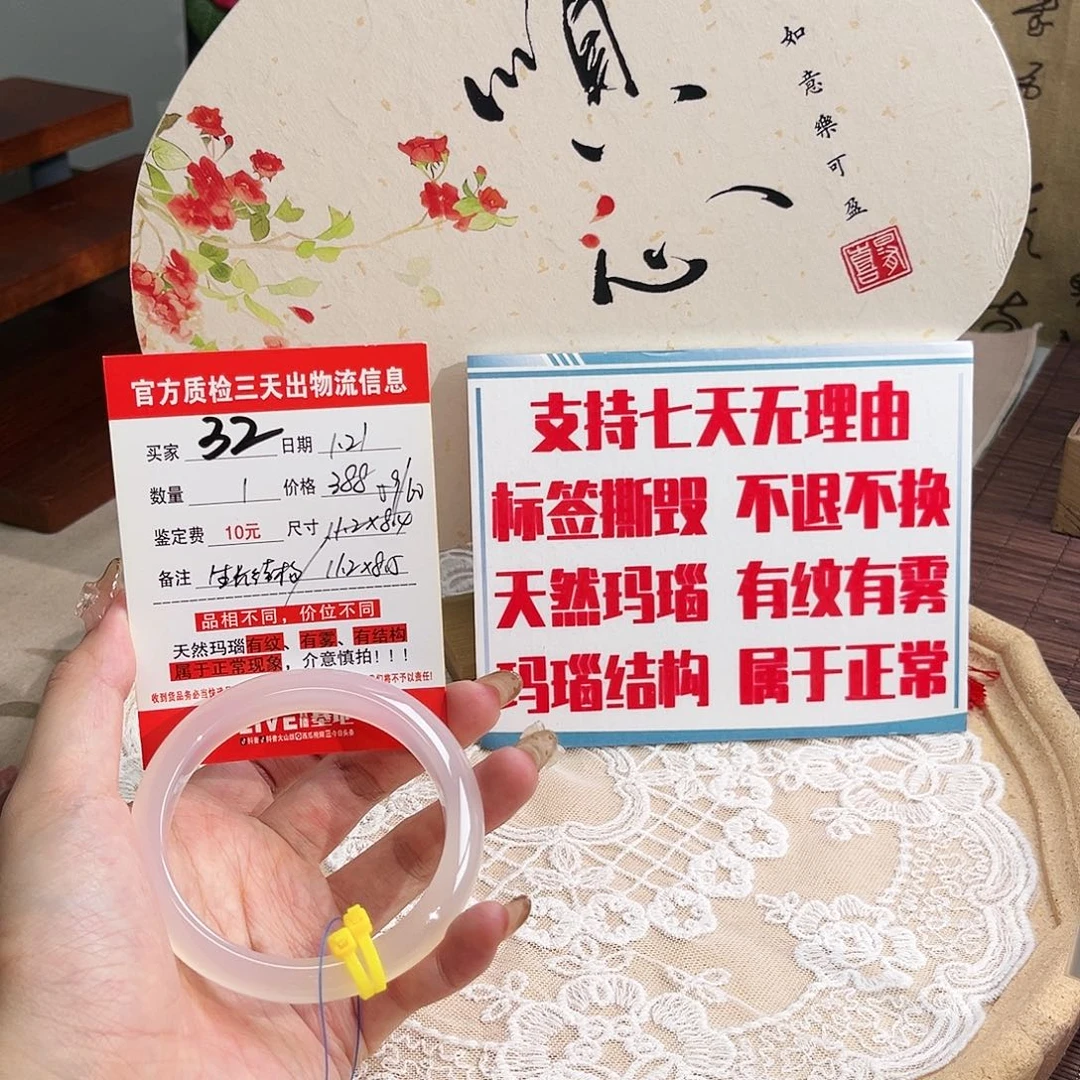 如意樂可盈
官方质检三天出物流信息
买家 32 日期 1.21
数量 1 价格 388
鉴定费 10元 尺寸 11.2×8.4
备注 生长结构 11.2×8.5
品相不同,价位不同
天然玛瑙有纹、有雾、有结构
属于正常现象,介意慎拍!!!
收到货品务必当快 将不予以责任!
LIVE 基地
支持七天无理由
标签撕毁 不退不换
天然玛瑙 有纹有雾
玛瑙结构 属于正常